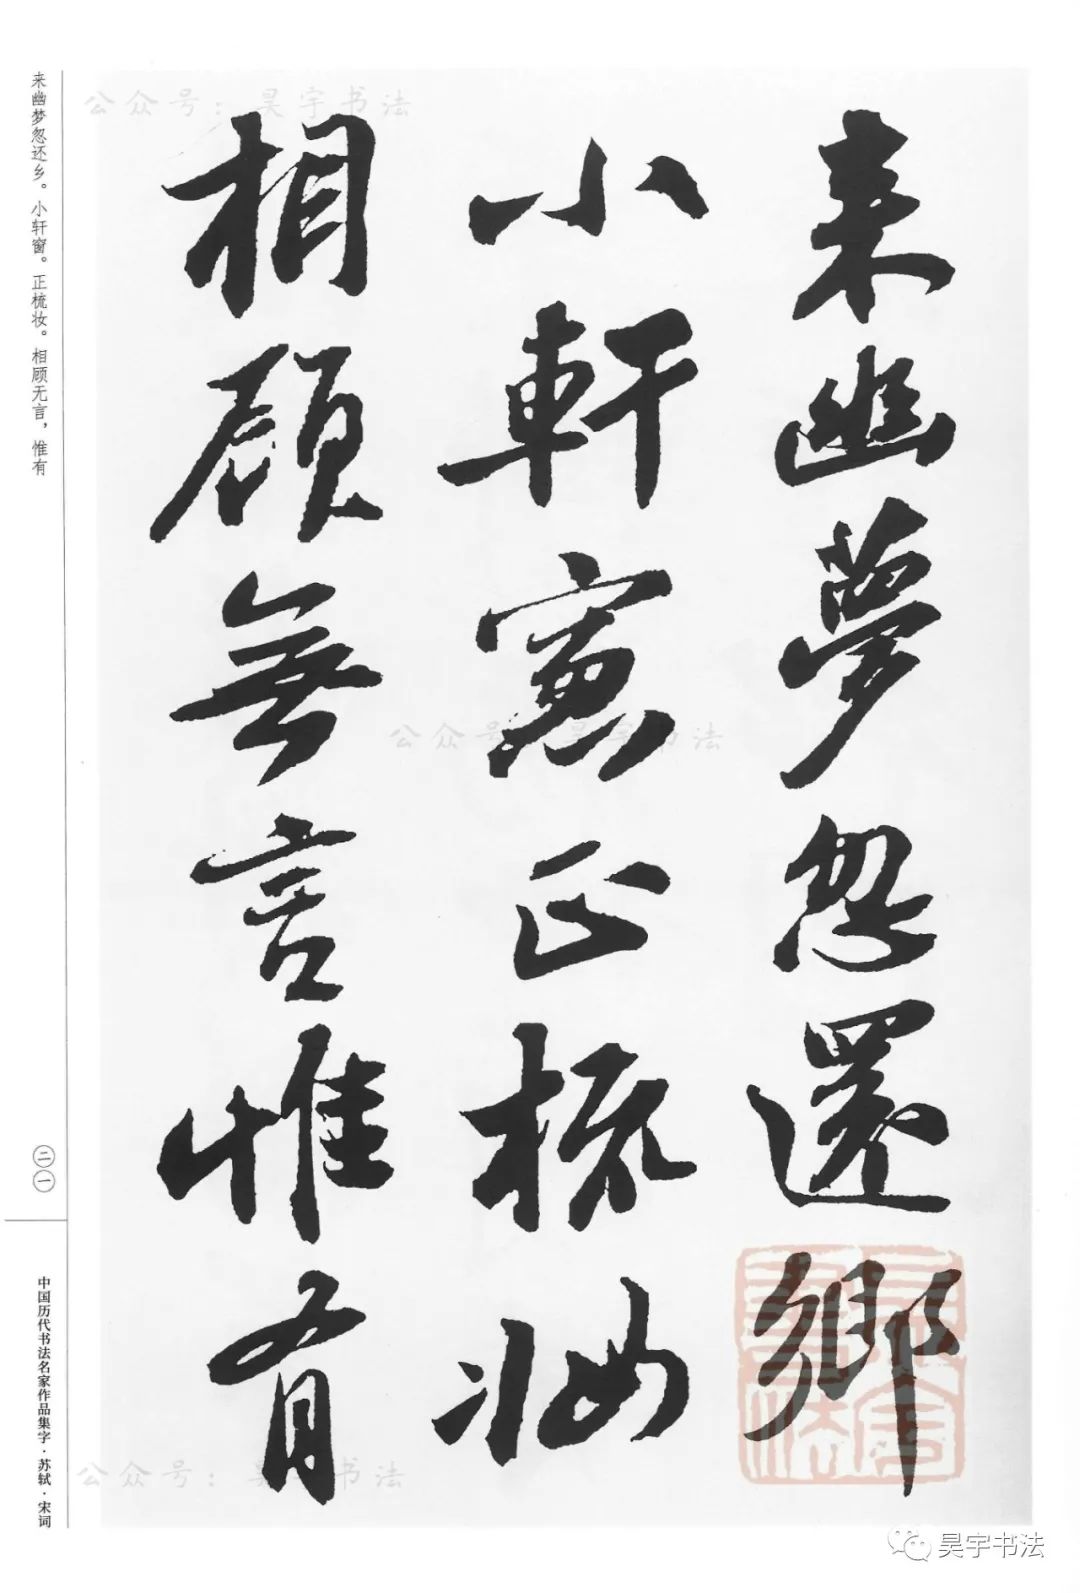 来幽夢忽還鄉
小軒窻正梳妝
相顧無言惟有
来幽梦忽还乡。小轩窗。正梳妆。相顾无言，惟有
二一
中国历代书法名家作品集字·苏轼·宋词
公众号：昊宇书法
公众号：昊宇书法
公众号：昊宇书法
昊宇书法